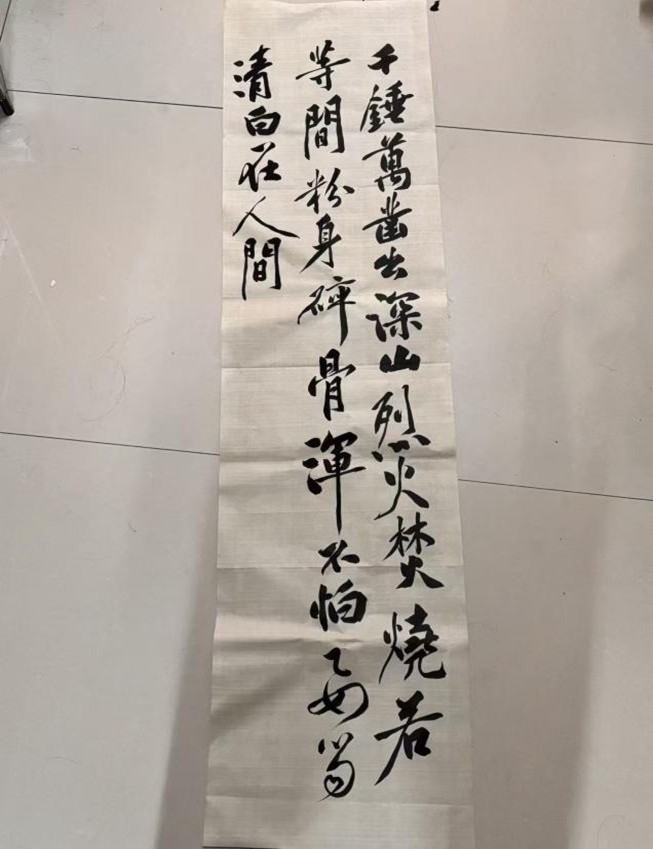 千錘萬凿出深山烈火焚燒若
等間粉身碎骨渾不怕要留
清白在人間